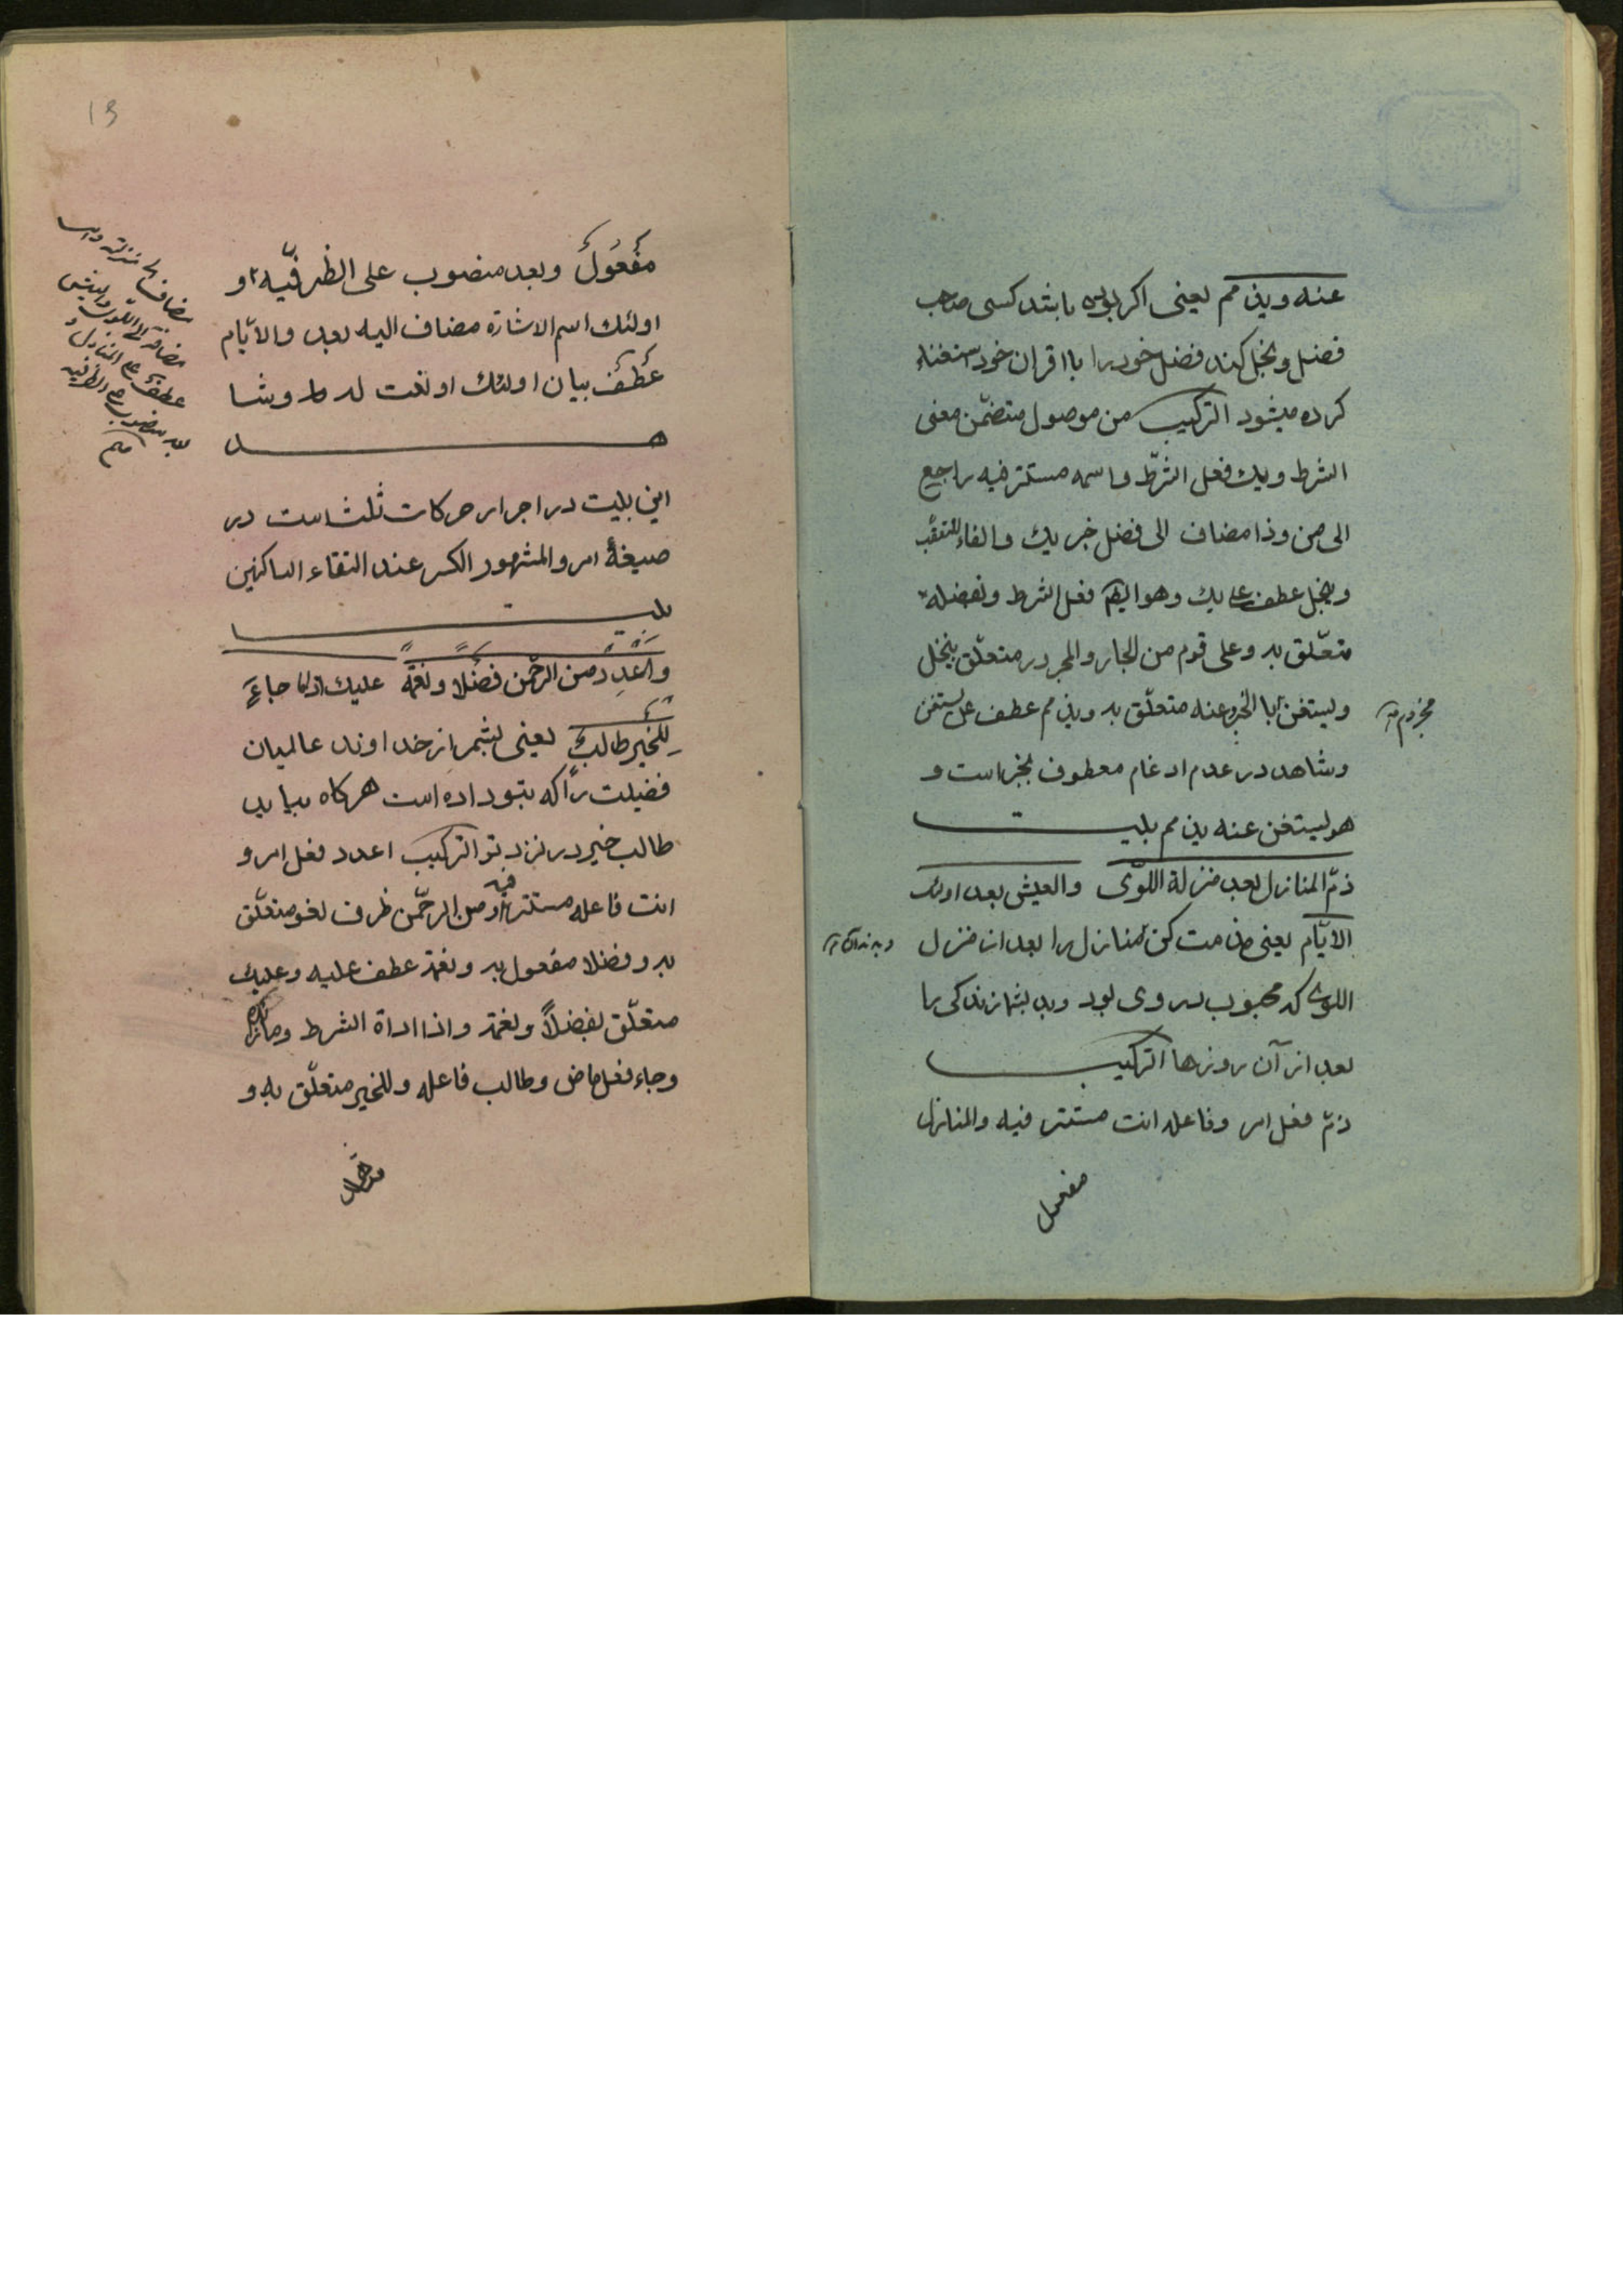 عنه ويذمم يعنى اكر بوده باشد كسى صاحب
فضل و بخل كند فضل خود را با اقران خود استغناء
كرده ميشود التركيب من موصول متضمّن معنى
الشرط ويك فعل الشرط واسمه مستتر فيه راجع
الى من وذا مضاف الى فضل خبر يك والفاء للتعقّب
ويبخل عطف على يك وهو ايضا فعل الشرط وبفضله
متعّلق به وعلى قوم من الجار والمجرور متعلّق بيبخل
ويستغن بالجزا وعنه متعلّق به ويذمم عطف على يستغن
مجزوم
وشاهد در عدم ادغام معطوف بجزاست و
هو ليستغن عنه يذمم بليت
ذمّ المنازل بعد منزلة اللوّى والعيش بعد اولئك
الايّام يعنى مذمت كن منازل را بعد از منزل
اللوى كه محبوب بروى بود وبد بشمار زندكى را
بعد از آن روزها التركيب
ذمّ فعل امر وفاعله انت مستتر فيه والمنازل
مفعول
13
مفعول وبعد منصوب على الظرفيّه و
اولئك اسم الاشارة مضاف اليه بعد والايّام
عطف بيان اولئك او نعت له وشا
هد
اين بليت در اجراء حركات ثلث است در
صيغهٔ امر والمشهور الكسر عند التقاء الساكنين
بليت
واعدد من الرحّمن فضلا ونعمة عليك اذا ما جاء
للخير طالب يعنى بشمر از خداوند عالميان
فضيلت را كه بتو داده است هركاه بيايد
طالب خير در نزد تو التركيب اعدد فعل امر و
انت فاعله مستتر فيه ومن الرحّمن ظرف لغو متعلّق
به وفضلا مفعول به ونعمة عطف عليه وعليك
متعلّق بفضلاً ونعمة واذا اداة الشرط وما زائده
وجاء فعل ماض وطالب فاعله وللخير متعلّق به و
مضاف منزلة
مضافة الى اللوى والعيش
عطف على المنازل و
بعد منصوب على الظرفيه